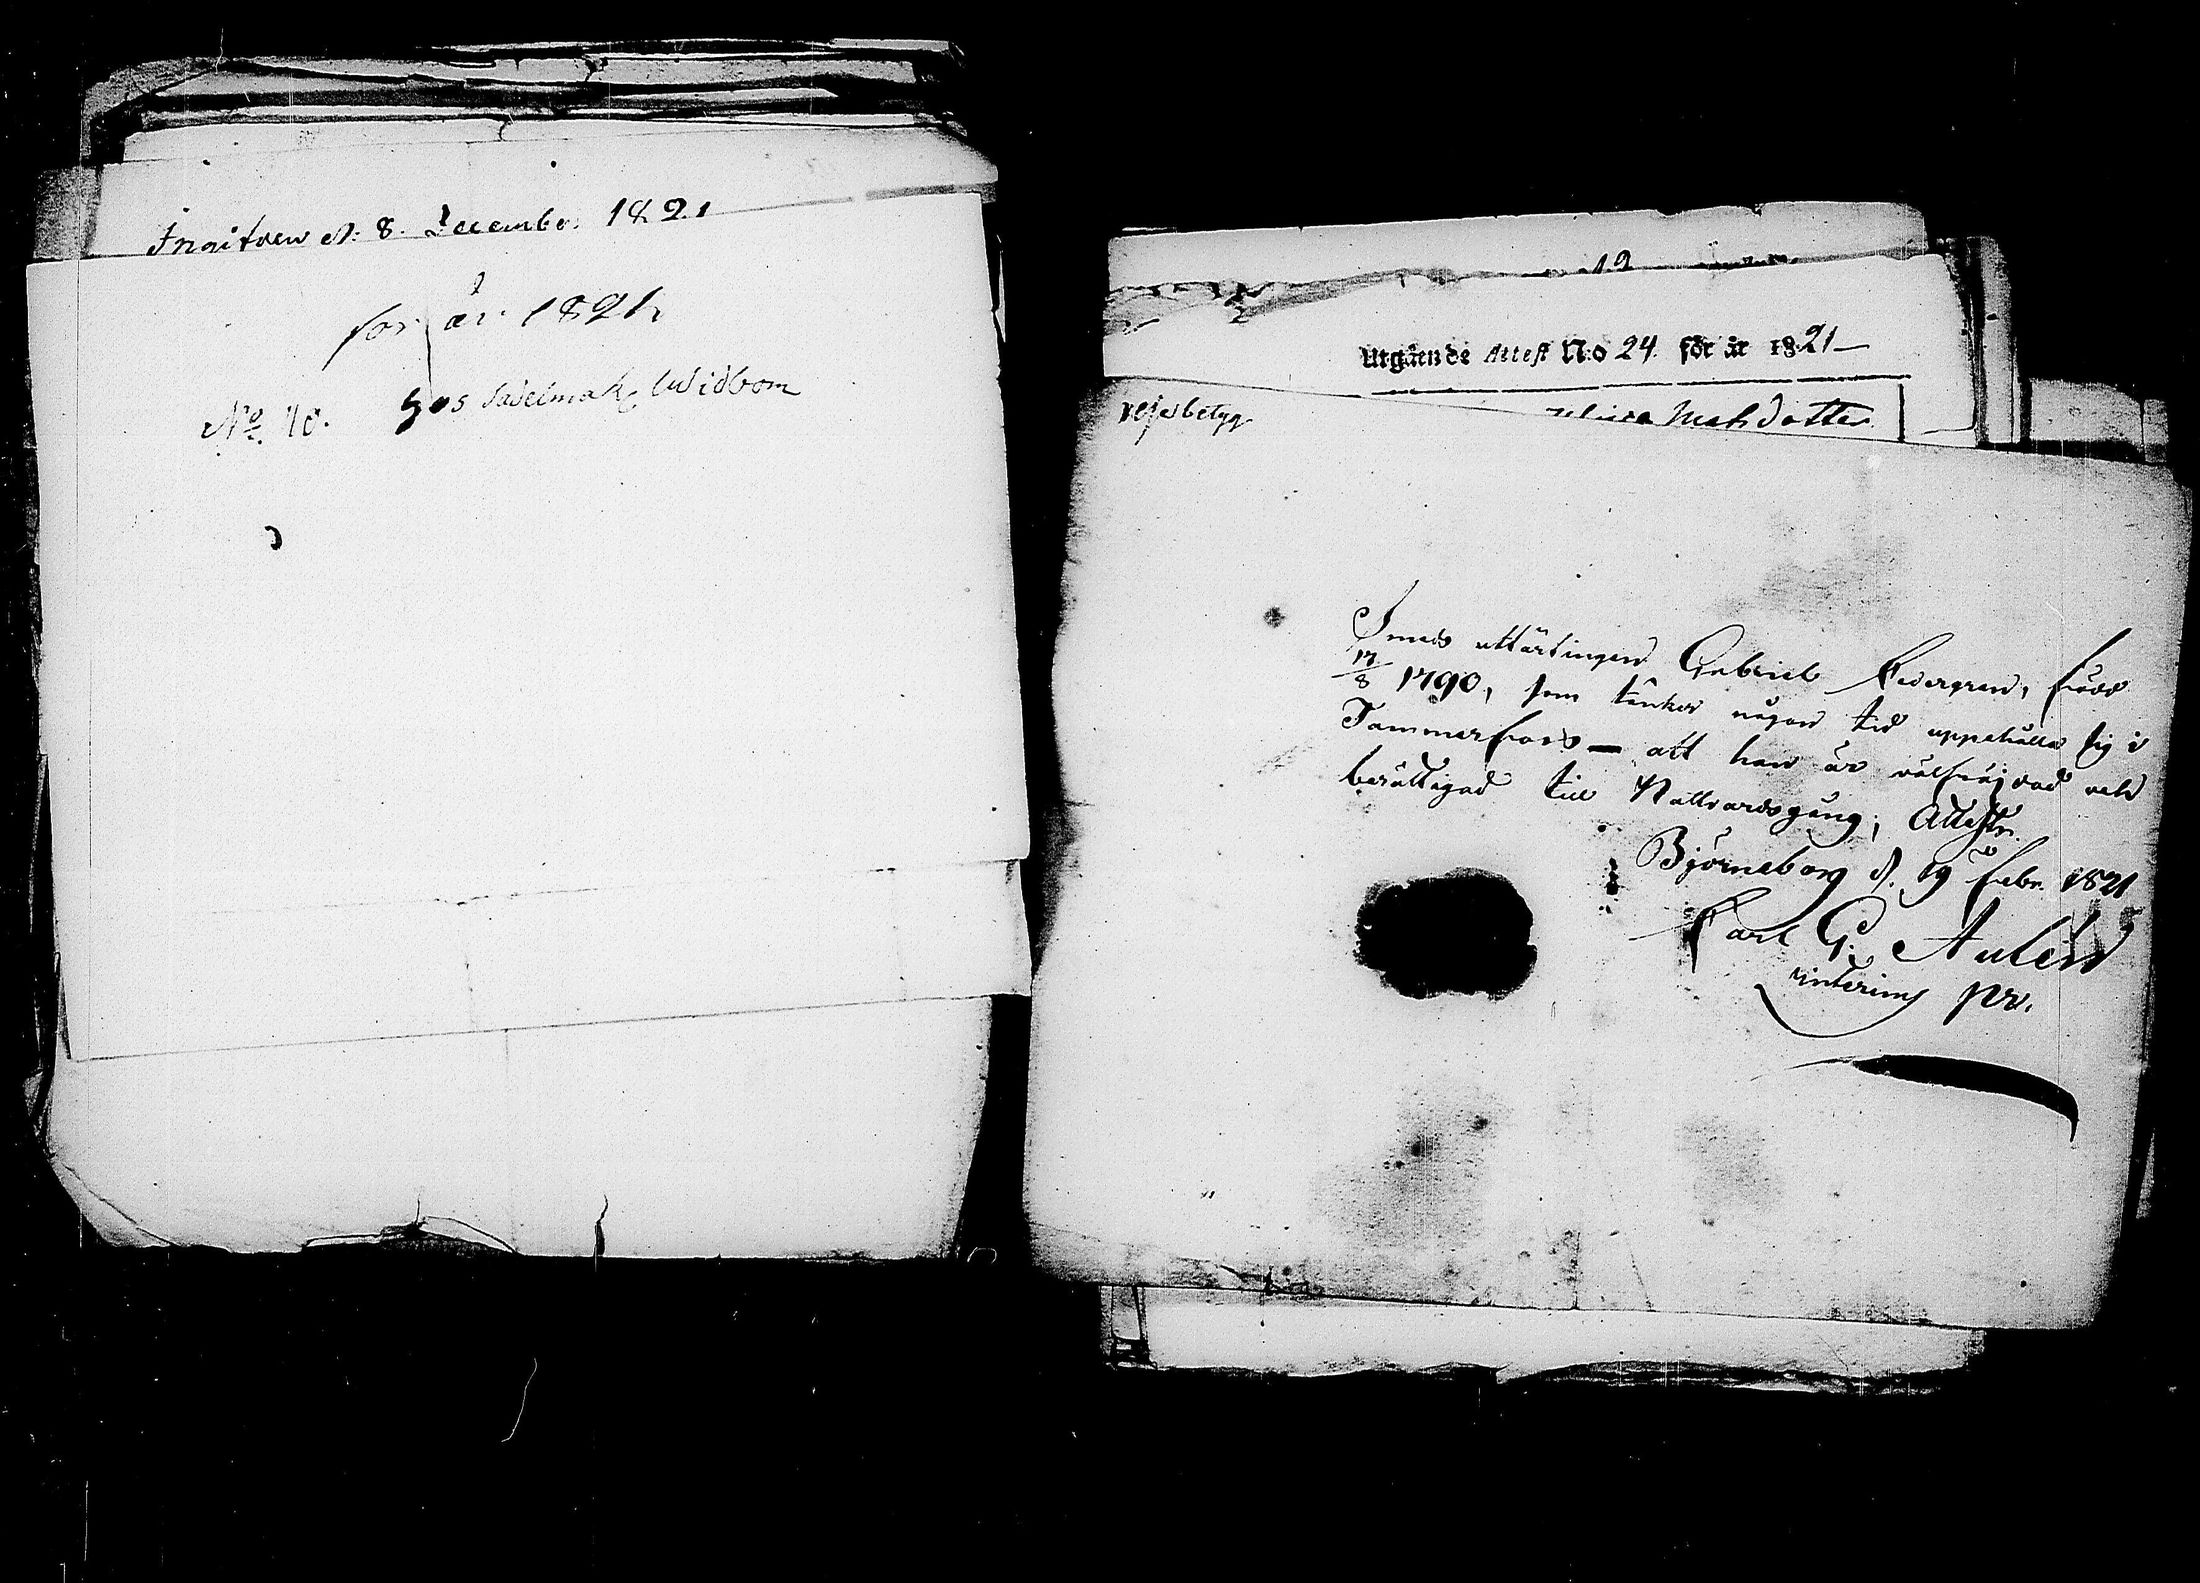 Ingifven d. 8. December 1821
för år 1821
No. 10. hos Sadelmak. Widbom
Utgående Attest No 24. för år 1821
Matsdotter
betyg
Smeds utlärlingen Gabriel Federgren, född
17/8 1790, som tänker någon tid uppehålla sig i
Tammerfors — att han är välfräjdad och
berättigad till Nattvardsgång, Attest.
Björneborg d. 19 Febr 1821
Carl G. Aulén
interims pr.